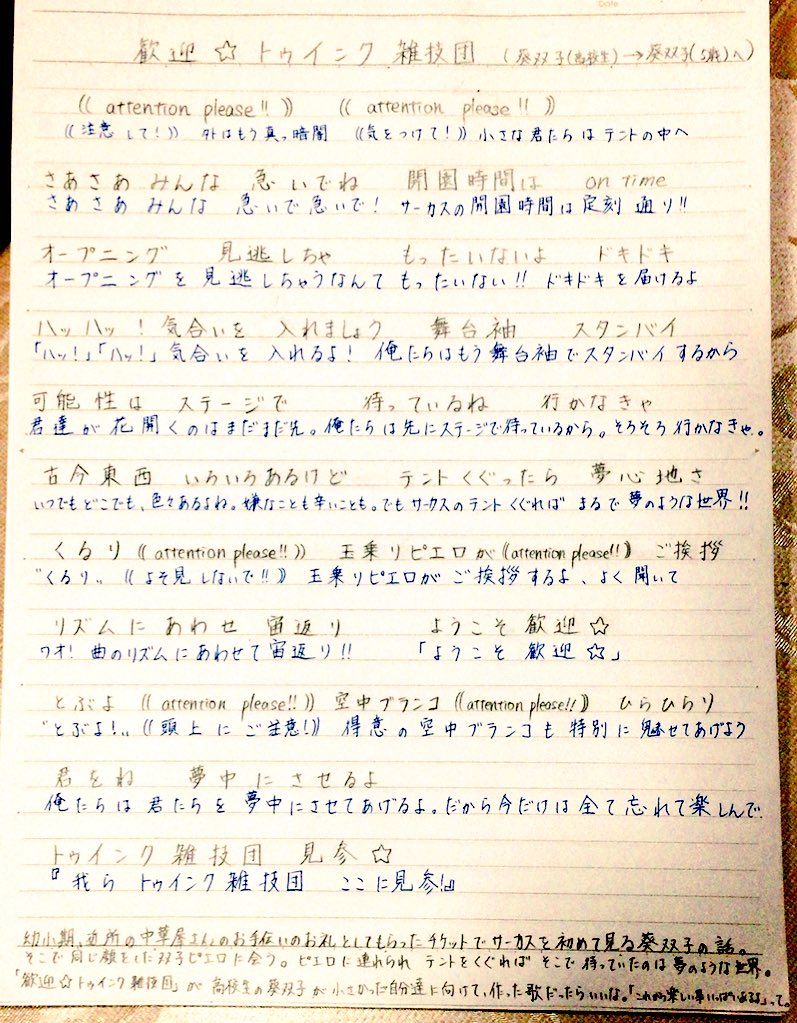 歓迎☆トゥインク雑技団 (葵双子(高校生)→葵双子(5歳)へ)
(( attention please!! )) (( attention please!! ))
((注意して!)) 外はもう真っ暗闇 ((気をつけて!)) 小さな君たちはテントの中へ
さあさあ みんな 急いでね 開園時間は on time
さあさあ みんな 急いで急いで! サーカスの開園時間は定刻通り!!
オープニング 見逃しちゃ もったいないよ ドキドキ
オープニングを見逃しちゃうなんて もったいない!! ドキドキを届けるよ
ハッハッ!気合いを 入れましょう 舞台袖 スタンバイ
「ハッ!」「ハッ!」気合いを 入れるよ! 俺たちはもう舞台袖でスタンバイするから
可能性は ステージで 待っているね 行かなきゃ
君達が花開くのはまだまだ先。俺たちは先にステージで待っているから。そろそろ行かなきゃ。
古今東西 いろいろあるけど テントくぐったら 夢心地さ
いつでもどこでも、色々あるよね。嫌なことも辛いことも。でもサーカスのテントくぐれば まるで夢のような世界!!
くるり ((attention please!!)) 玉乗りピエロが((attention please!!)) ご挨拶
"くるり" ((よそ見しないで!!)) 玉乗りピエロがご挨拶するよ、よく聞いて
リズムに あわせ 宙返り ようこそ歓迎☆
ワオ!曲のリズムにあわせて宙返り!! 「ようこそ歓迎☆」
とぶよ ((attention please!!)) 空中ブランコ((attention please!!)) ひらひらり
"とぶよ!" ((頭上にご注意!)) 得意の空中ブランコも特別に魅せてあげよう
君をね 夢中にさせるよ
俺たちは君たちを夢中にさせてあげるよ。だから今だけは全て忘れて楽しんで
トゥインク雑技団 見参☆
『我ら トゥインク雑技団 ここに見参!』
幼小期、近所の中華屋さんのお手伝いのお礼としてもらったチケットでサーカスを初めて見る葵双子の話。
そこで同じ顔をした双子ピエロに会う。ピエロに連れられ テントをくぐれば そこで待っていたのは夢のような世界。
「歓迎☆トゥインク雑技団」が高校生の葵双子が小さかった自分達に向けて、作った歌だったらいいな。「これから楽しい事いっぱいあるよ」って。